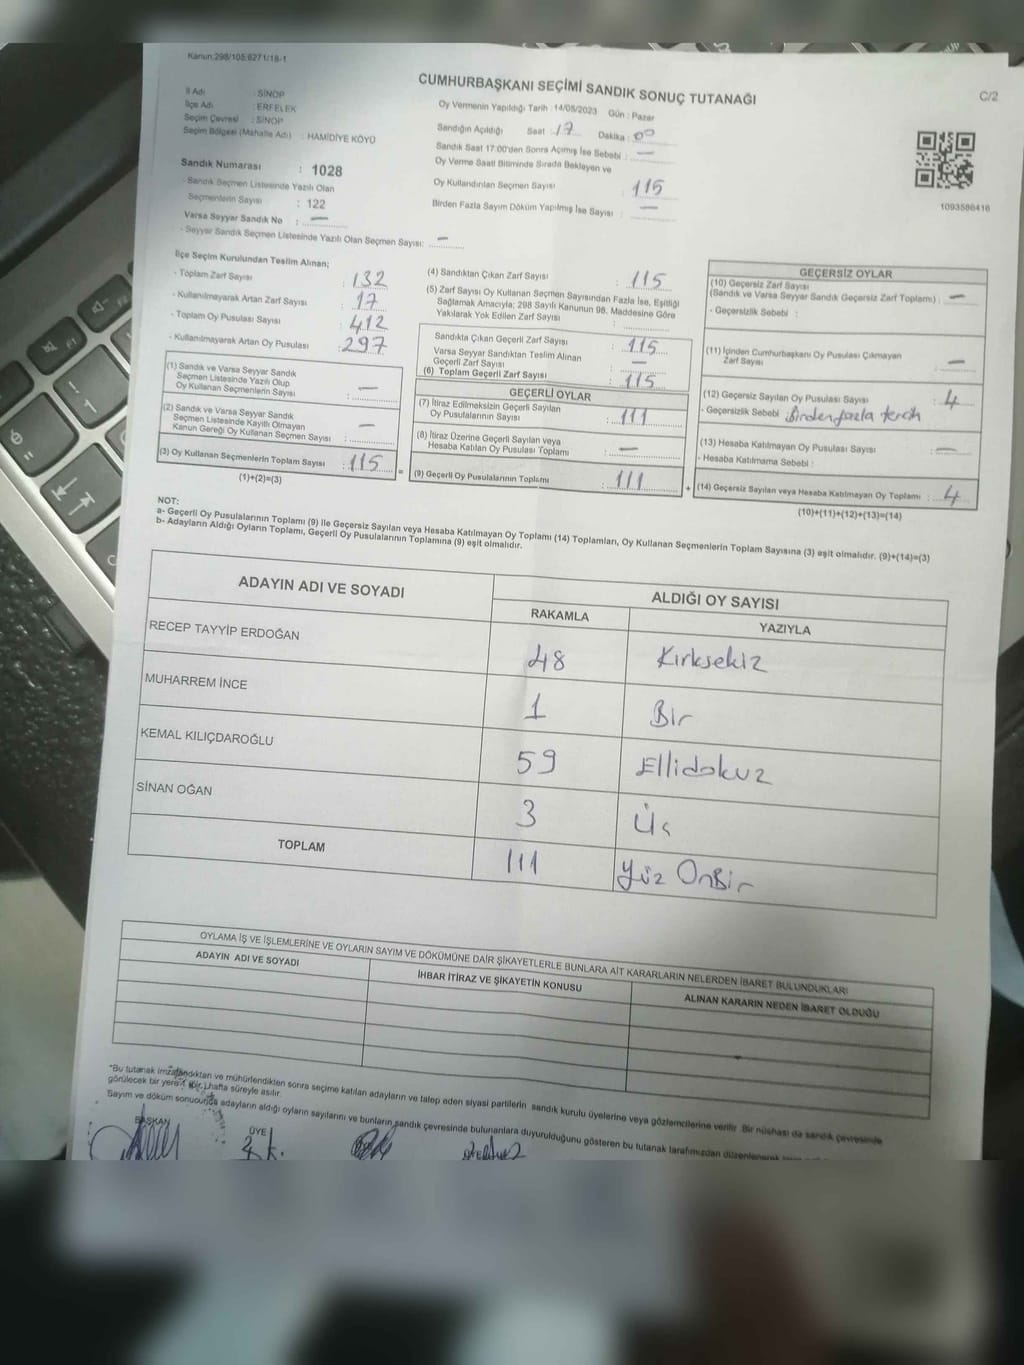 Kanun:298/105;6271/18-1
CUMHURBAŞKANI SEÇİMİ SANDIK SONUÇ TUTANAĞI
C/2
İl Adı : SİNOP
İlçe Adı : ERFELEK
Seçim Çevresi : SİNOP
Seçim Bölgesi (Mahalle Adı) : HAMİDİYE KÖYÜ
Oy Vermenin Yapıldığı Tarih : 14/05/2023 Gün : Pazar
Sandığın Açıldığı Saat : 17 Dakika : 00
Sandık Saat 17:00'den Sonra Açımış İse Sebebi : —
Oy Verme Saati Bitiminde Sırada Bekleyen ve
Oy Kullandırılan Seçmen Sayısı : 115
Birden Fazla Sayım Döküm Yapılmış İse Sayısı : —
1093586416
Sandık Numarası : 1028
- Sandık Seçmen Listesinde Yazılı Olan
Seçmenlerin Sayısı : 122
Varsa Seyyar Sandık No : —
- Seyyar Sandık Seçmen Listesinde Yazılı Olan Seçmen Sayısı: —
İlçe Seçim Kurulundan Teslim Alınan;
- Toplam Zarf Sayısı : 132
- Kullanılmayarak Artan Zarf Sayısı : 17
- Toplam Oy Pusulası Sayısı : 412
- Kullanılmayarak Artan Oy Pusulası : 297
(1) Sandık ve Varsa Seyyar Sandık
Seçmen Listesinde Yazılı Olup
Oy Kullanan Seçmenlerin Sayısı : —
(2) Sandık ve Varsa Seyyar Sandık
Seçmen Listesinde Kayıtlı Olmayan
Kanun Gereği Oy Kullanan Seçmen Sayısı : —
(3) Oy Kullanan Seçmenlerin Toplam Sayısı : 115
(1)+(2)=(3)
(4) Sandıktan Çıkan Zarf Sayısı : 115
(5) Zarf Sayısı Oy Kullanan Seçmen Sayısından Fazla İse, Eşitliği
Sağlamak Amacıyla; 298 Sayılı Kanunun 98. Maddesine Göre
Yakılarak Yok Edilen Zarf Sayısı :
Sandıkta Çıkan Geçerli Zarf Sayısı : 115
Varsa Seyyar Sandıktan Teslim Alınan
Geçerli Zarf Sayısı : —
(6) Toplam Geçerli Zarf Sayısı : 115
GEÇERLİ OYLAR
(7) İtiraz Edilmeksizin Geçerli Sayılan
Oy Pusulalarının Sayısı : 111
(8) İtiraz Üzerine Geçerli Sayılan veya
Hesaba Katılan Oy Pusulası Toplamı : —
= (9) Geçerli Oy Pusulalarının Toplamı : 111
GEÇERSİZ OYLAR
(10) Geçersiz Zarf Sayısı
(Sandık ve Varsa Seyyar Sandık Geçersiz Zarf Toplamı) : —
- Geçersizlik Sebebi :
(11) İçinden Cumhurbaşkanı Oy Pusulası Çıkmayan
Zarf Sayısı : —
(12) Geçersiz Sayılan Oy Pusulası Sayısı : 4
- Geçersizlik Sebebi : Birden fazla tercih
(13) Hesaba Katılmayan Oy Pusulası Sayısı : —
- Hesaba Katılmama Sebebi :
+ (14) Geçersiz Sayılan veya Hesaba Katılmayan Oy Toplamı : 4
(10)+(11)+(12)+(13)=(14)
NOT:
a- Geçerli Oy Pusulalarının Toplamı (9) ile Geçersiz Sayılan veya Hesaba Katılmayan Oy Toplamı (14) Toplamları, Oy Kullanan Seçmenlerin Toplam Sayısına (3) eşit olmalıdır. (9)+(14)=(3)
b- Adayların Aldığı Oyların Toplamı, Geçerli Oy Pusulalarının Toplamına (9) eşit olmalıdır.
ADAYIN ADI VE SOYADI
ALDIĞI OY SAYISI
RAKAMLA YAZIYLA
RECEP TAYYİP ERDOĞAN 48 Kırksekiz
MUHARREM İNCE 1 Bir
KEMAL KILIÇDAROĞLU 59 Ellidokuz
SİNAN OĞAN 3 Üç
TOPLAM 111 Yüz OnBir
OYLAMA İŞ VE İŞLEMLERİNE VE OYLARIN SAYIM VE DÖKÜMÜNE DAİR ŞİKAYETLERLE BUNLARA AİT KARARLARIN NELERDEN İBARET BULUNDUKLARI
ADAYIN ADI VE SOYADI İHBAR İTİRAZ VE ŞİKAYETİN KONUSU ALINAN KARARIN NEDEN İBARET OLDUĞU
"Bu tutanak imzalandıktan ve mühürlendikten sonra seçime katılan adayların ve talep eden siyasi partilerin sandık kurulu üyelerine veya gözlemcilerine verilir. Bir nüshası da sandık çevresinde
görülecek bir yere 1 (bir) hafta süreyle asılır.
Sayım ve döküm sonucunda adayların aldığı oyların sayılarını ve bunların sandık çevresinde bulunanlara duyurulduğunu gösteren bu tutanak tarafımızdan düzenlenerek
BAŞKAN ÜYE